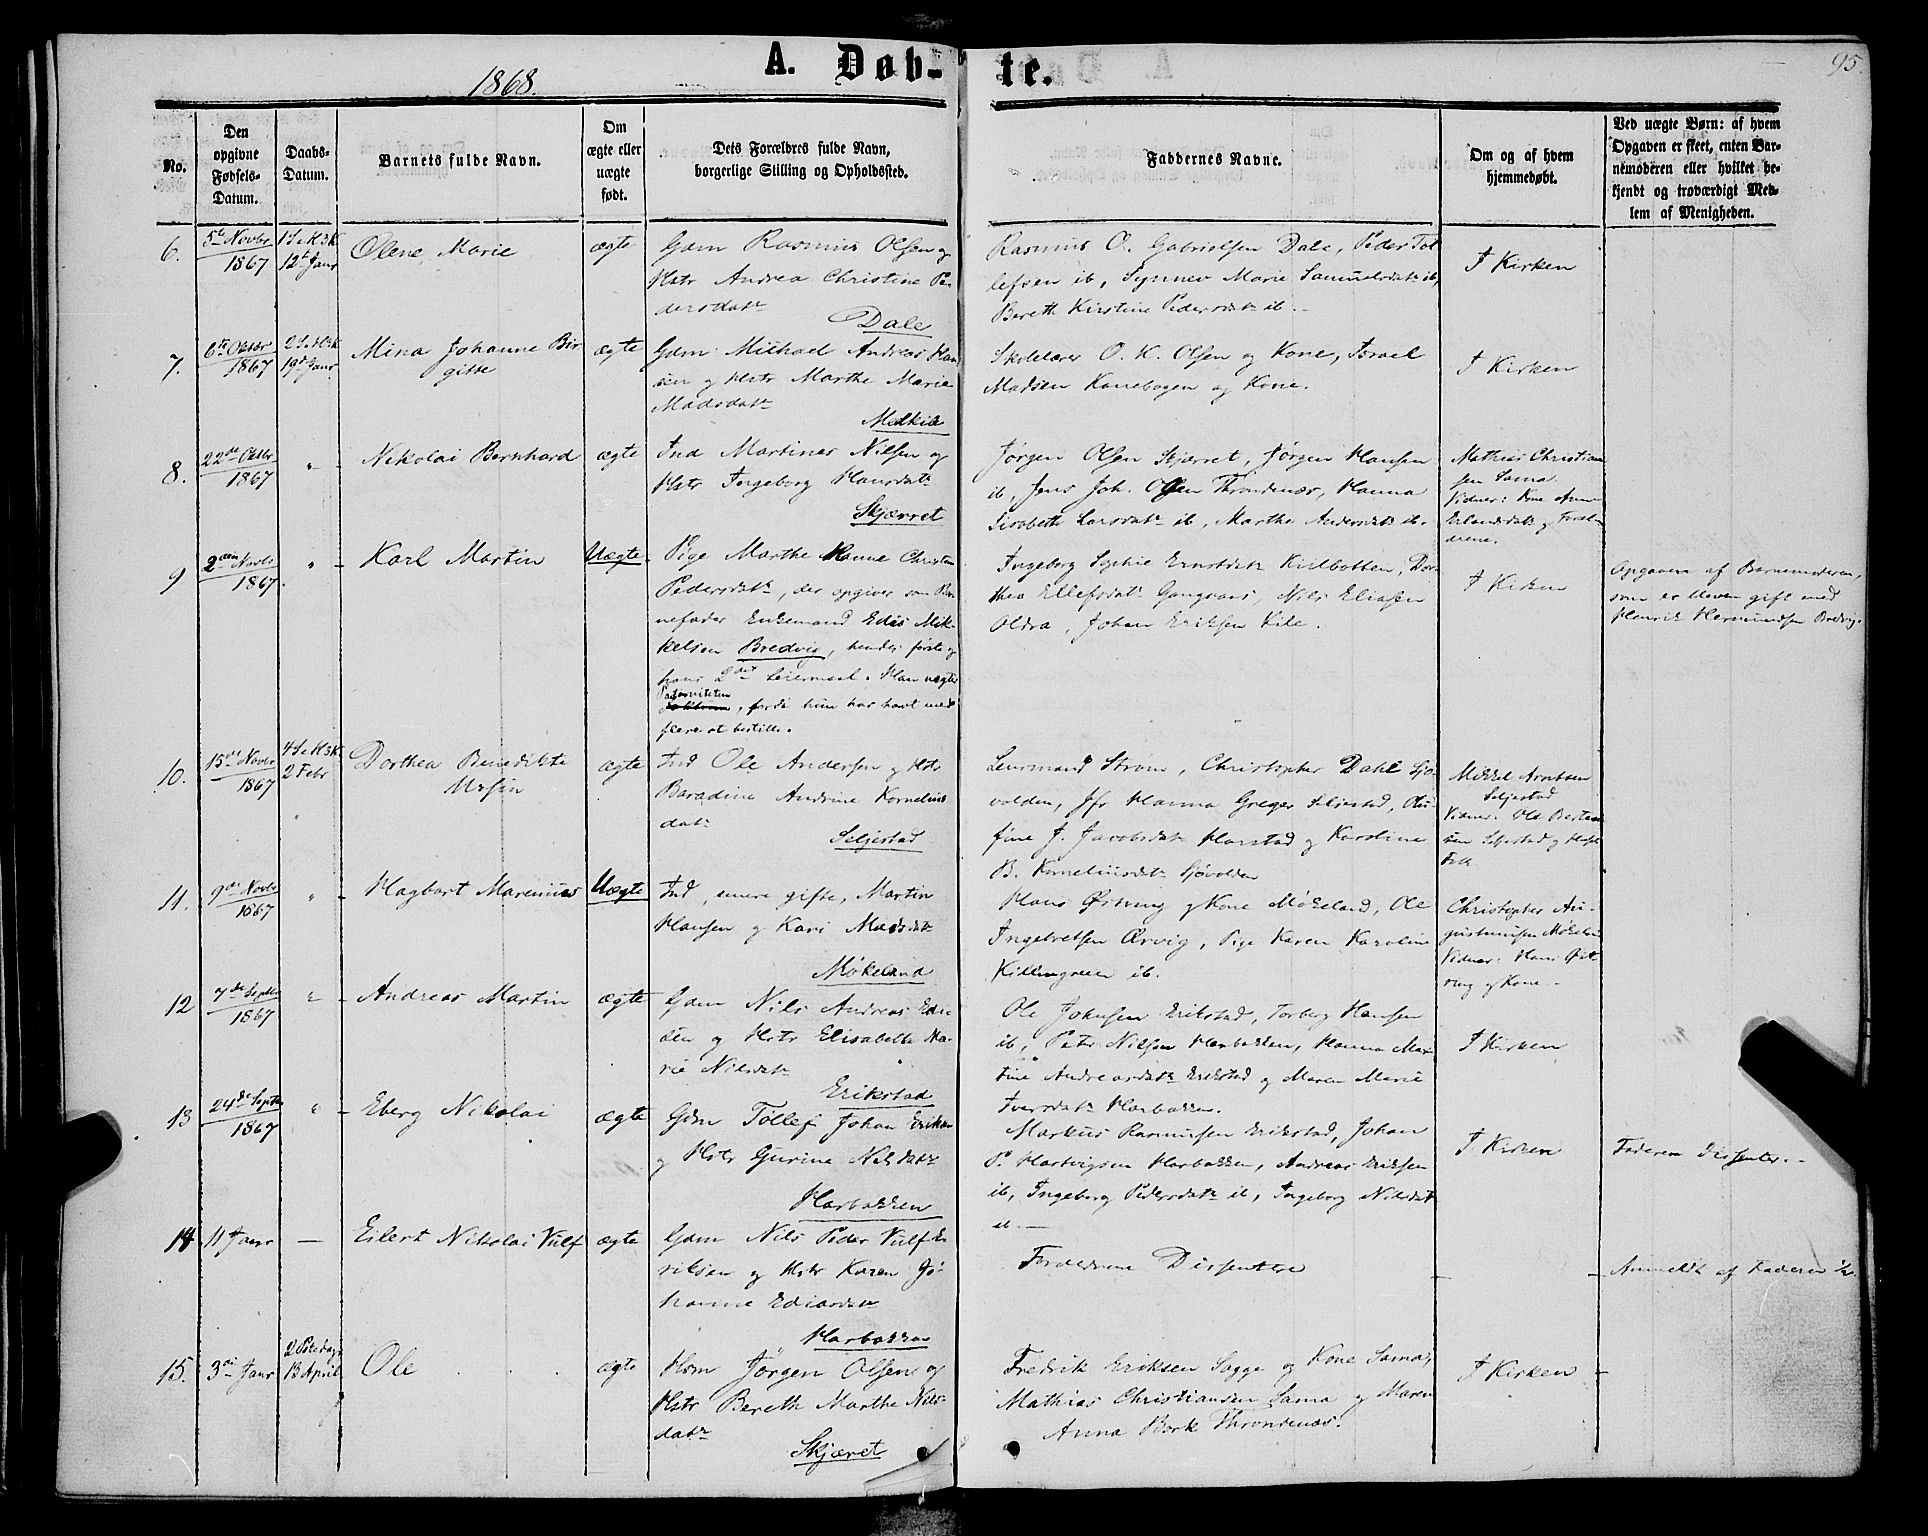 1868.
A. Døb-
te.
95.
No.
Den
opgivne
Fødsels-
Datum.
Daabs-
Datum.
Barnets fulde Navn.
Om
ægte eller
uægte
født.
Dets Forældres fulde Navn,
borgerlige Stilling og Opholdssted.
Faddernes Navne.
Om og af hvem
hjemmedøbt.
Ved uægte Børn: af hvem
Opgaven er skeet, enten Bar-
nemoderen eller hvilket be-
kjendt og troværdigt Med-
lem af Menigheden.
6.
5te Novbr
1867
12t Janr
Olene Marie
ægte
Gdm Rasmus Olsen og
Hstr Andrea Christine Pe-
dersdatr
Dale
Rasmus O. Gabrielsen Dale, Peder Tol
lefsen ib, Synnev Marie Samuelsdatr ib,
Bereth Kirstine Pedersdatr ib.
I Kirken
7.
6te Oktbr
1867
19de Janr
Mina Johanne Bir
gitte
ægte
Gdm Michael Andreas Han
sen og Hstr Marthe Marie
Madsdatr
Melkia
Skolelærer O. K. Olsen og Kone, Israel
Madsen Kanebogen og Kone.
I Kirken
8.
22de Oktbr
1867
"
Nikolai Bernhard
ægte
Ind Martinus Nilsen og
Hstr Ingeborg Hansdatr
Skjærret
Jørgen Olsen Skjærret, Jørgen Hansen
ib, Jens Joh. Olsen Throndenæs, Hanna
Lisabeth Larsdatr ib, Marthe Andersdatr ib.
Mathias Christian
sen Sama
Vidner: Kone Anne
Erlandsdatr og Foræl-
drene.
9
2den Novbr
1867.
"
Karl Martin
Uægte.
Pige Marthe Hanne Christine
Pedersdatr, der opgiver som Bar
nefader Enkemand Edis Mik-
kelsen Bredvig, hendes første og
hans 2det Leiermaal. Han nægter
Paterniteten
, fordi hun har havt med
flere at bestille.
Ingeborg Sophie Ernstdatr Kielbotten, Dor
thea Ellefsdatr Gangsaas, Nils Eliasen
Oldra, Johan Eriksen Kile.
I Kirken
Opgaven af Barnemoderen,
som er bleven gift med
Henrik Hermundsen Bredvig.
10.
15de Novbr
1867
2 Febr
Dorthea Benedikte
Ursin
ægte
Ind Ole Andersen og Hstr
Baradine Andrine Kornelius
datr
Seljestad
Lensmand Strøm, Christopher Dahl Sjø-
volden, Jfr Hanna Greger Seljestad, Olu-
fine J. Jacobsdatr Harstad og Karoline
B. Korneliusdatr Sjøvolden
Mikkel Arntsen
Seljestad
Vidner: Ole Bertin
sen Seljestad og
Folk
11.
9de Novbr
1867
"
Hagbart Marenius
Uægte
Ind, senere gifte, Martin
Hansen og Kari Madsdatr
Møkeland
Hans Østving og Kone Møkeland, Ole
Ingebretsen Ørvig, Pige Karen Karoline
Killingreen ib.
Christopher Au-
gustinusen Møkeland
Vidner: Hans Øst-
ving og Kone.
12
7de Septbr
1867
"
Andreas Martin
ægte
Gdm Nils Andreas Edis
sen og Hstr Elisabeth Ma-
rie Nilsdatr
Erikstad
Ole Johnsen Erikstad, Torberg Hansen
ib, Peter Nilsen Harbakken, Hanna Mar
tine Andreasdatr Erikstad og Maren Marie
Iversdatr Harbakken.
I Kirken
13
24de Septbr
1867
"
Eberg Nikolai
ægte
Gdm Tollef Johan Eriksen
og Hstr Gurine Nilsdatr
Harbakken
Markus Rasmussen Erikstad, Johan
P. Hartvigsen Harbakken, Andreas Eriksen
ib, Ingeborg Pedersdatr ib, Ingeborg Nilsdatr
ib.
I Kirken
Faderen Dissenter.
14
11 Janr
—
Eilert Nikolai Vulf
ægte
Gdm Nils Peder Vulf E-
riksen og Hstr Karen Jo-
hanne Ediasdatr
Harbakken
Forældrene Dissentere
Anmeldt af Faderen
15.
3die Janr
2 Paaskedag
13 April
Ole
ægte
Hsm Jørgen Olsen og
Hstr Bereth Marthe Nils-
datr
Skjæret
Fredrik Eriksen Sagge og Kone Sama,
Mathias Christiansen Sama og Maren
Anna Bork Throndenæs.
I Kirken